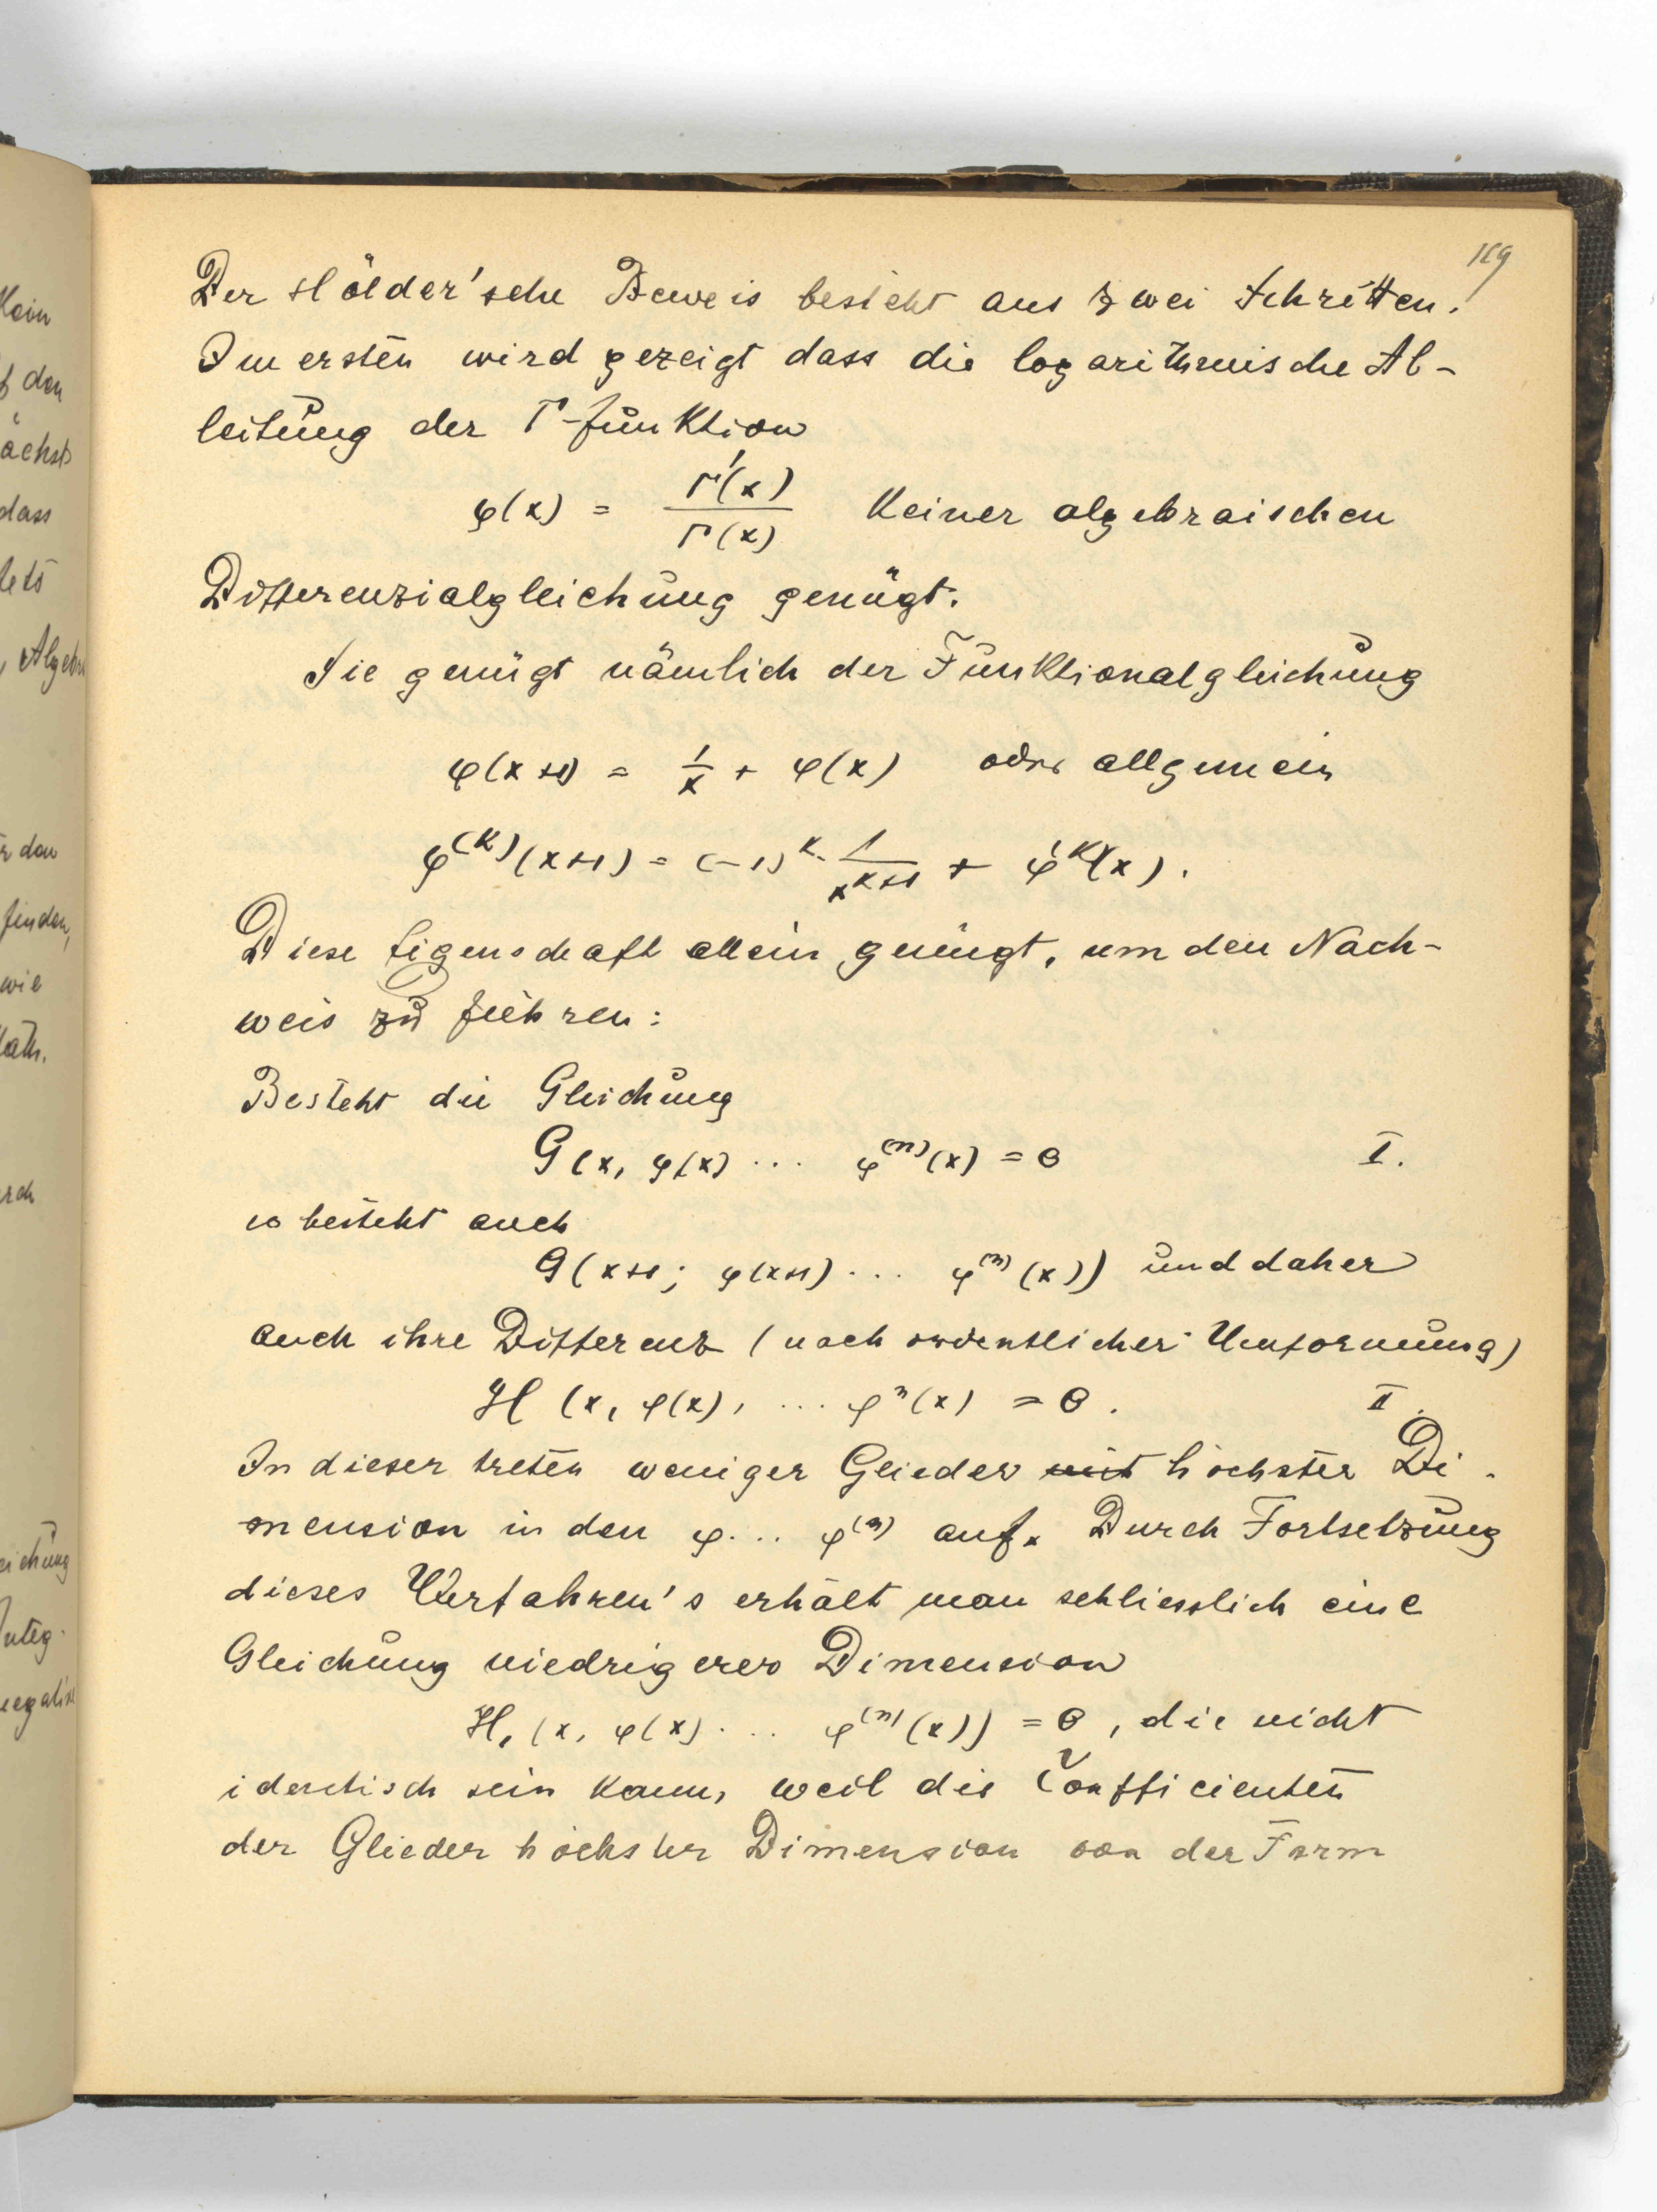 119
Der Hölder'sche Beweis besteht aus zwei Schritten.
Im ersten wird gezeigt dass die logarithmische Ab-
leitung der Γ-funktion
φ(x) = Γ'(x)/Γ(x) keiner algebraischen
Differenzialgleichung genügt.
Sie genügt nämlich der Funktionalgleichung
φ(x+1) = 1/x + φ(x) oder allgemein
φ^(k)(x+1) = (-1)^k · 1/x^(k+1) + φ^(k)(x).
Diese Eigenschaft allein genügt, um den Nach-
weis zu führen:
Besteht die Gleichung
G(x, φ(x) ... φ^(n)(x) = 0 I.
so besteht auch
G(x+1; φ(x+1) ... φ^(n)(x)) und daher
auch ihre Differenz (nach ordentlicher Umformung)
H (x, φ(x), ... φ^n(x) = 0. II.
In dieser treten weniger Glieder mit höchster Di-
mension in den φ... φ^(n) auf. Durch Fortsetzung
dieses Verfahren's erhält man schliesslich eine
Gleichung niedrigerer Dimension
H₁ (x, φ(x) ... φ^(n)(x)) = 0, die nicht
identisch sein kann, weil die Coefficienten
der Glieder höchster Dimension von der Form
Klein
f den
ächst
dass
tets
, Algebra
finden,
wie
Math.
rch
eichung
Integ-